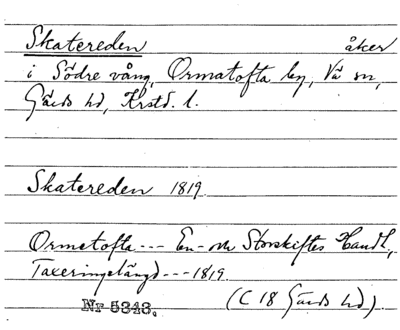 Skatereden åker
i Södre vång, Ormatofta by, Vä sn,
Gärds hd, Krstd. l.
Skatereden 1819
Ormatofta --- En- och Storskiftes Handl.,
Taxeringslängd --- 1819.
(C 18 Gärds hd)
Nr 5343.